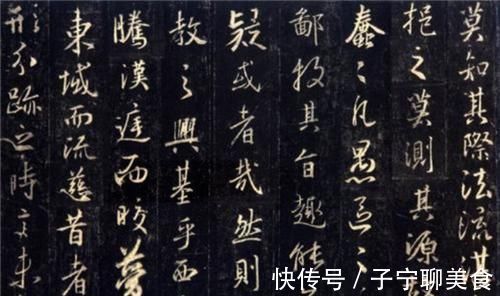 莫知其際法流湛
挹之莫測其源
蠢々凡愚區々
鄙投其旨趣能
疑或者哉然則
教之興基乎西
騰漢庭而皎夢
東域而流慈昔者
形分跡之時言未
快传号 / 子宁聊美食